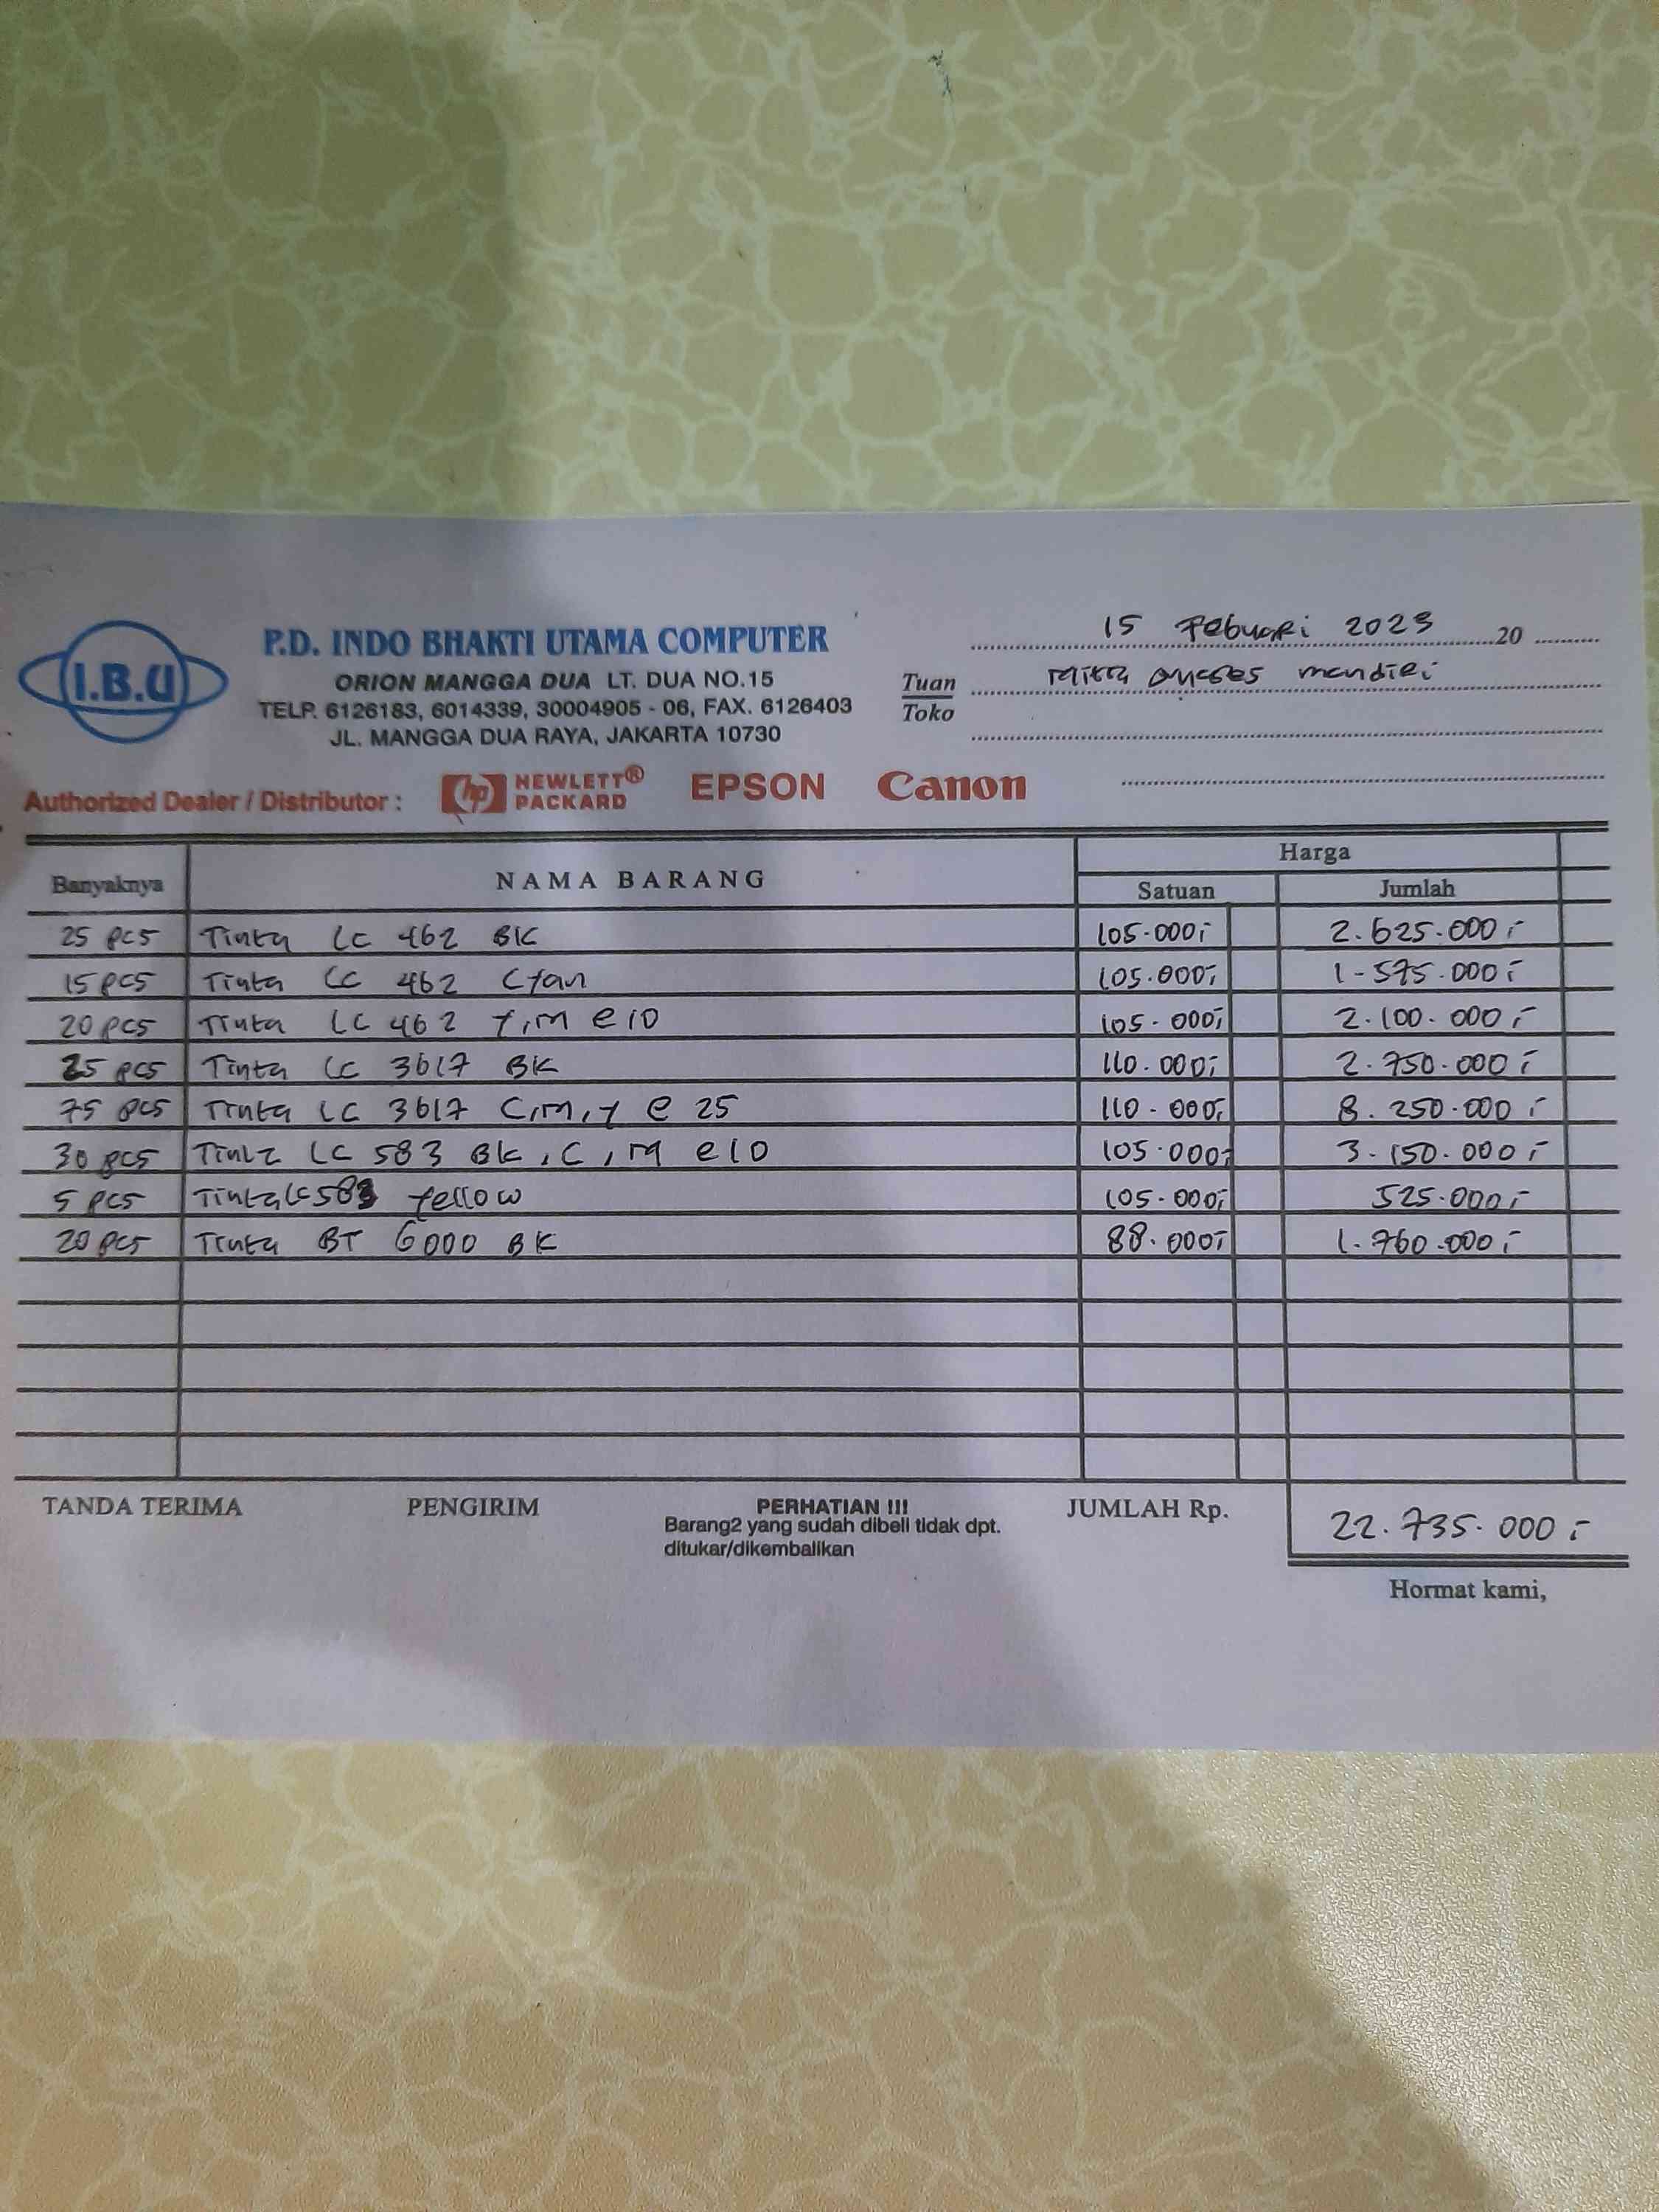 I.B.U
P.D. INDO BHAKTI UTAMA COMPUTER
ORION MANGGA DUA LT. DUA NO.15
TELP. 6126183, 6014339, 30004905 - 06, FAX. 6126403
JL. MANGGA DUA RAYA, JAKARTA 10730
15 Febuari 2023 20
Tuan Mitra Sukses mandiri
Toko
Authorized Dealer / Distributor : hp HEWLETT® PACKARD EPSON Canon
Banyaknya NAMA BARANG Harga
Satuan Jumlah
25 pcs Tinta LC 462 BK 105.000,- 2.625.000,-
15 pcs Tinta LC 462 Cyan 105.000,- 1-575.000,-
20 pcs Tinta LC 462 Y,M @ 10 105.000,- 2.100.000,-
25 pcs Tinta LC 3617 BK 110.000,- 2.750.000,-
75 pcs Tinta LC 3617 C,M,Y @ 25 110.000,- 8.250.000,-
30 pcs Tinta LC 583 BK, C, M @ 10 105.000,- 3.150.000,-
5 pcs Tinta LC 583 Yellow 105.000,- 525.000,-
20 pcs Tinta BT 6000 BK 88.000,- 1.760.000,-
TANDA TERIMA PENGIRIM PERHATIAN !!! JUMLAH Rp. 22.735.000,-
Barang2 yang sudah dibeli tidak dpt.
ditukar/dikembalikan
Hormat kami,